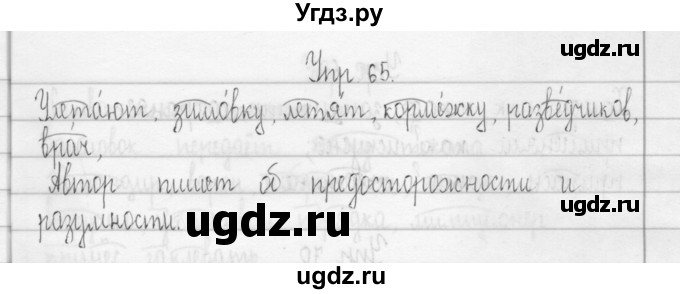 Угдз.ру
Упр 65.
Улета́ют, зимо́вку, летя́т, кормё́жку, разве́дчиков,
врач,
Автор пишет об предосторожности и
разумности.
ugdz.ru
ugdz.ru
ugdz.ru
ugdz.ru
ugdz.ru